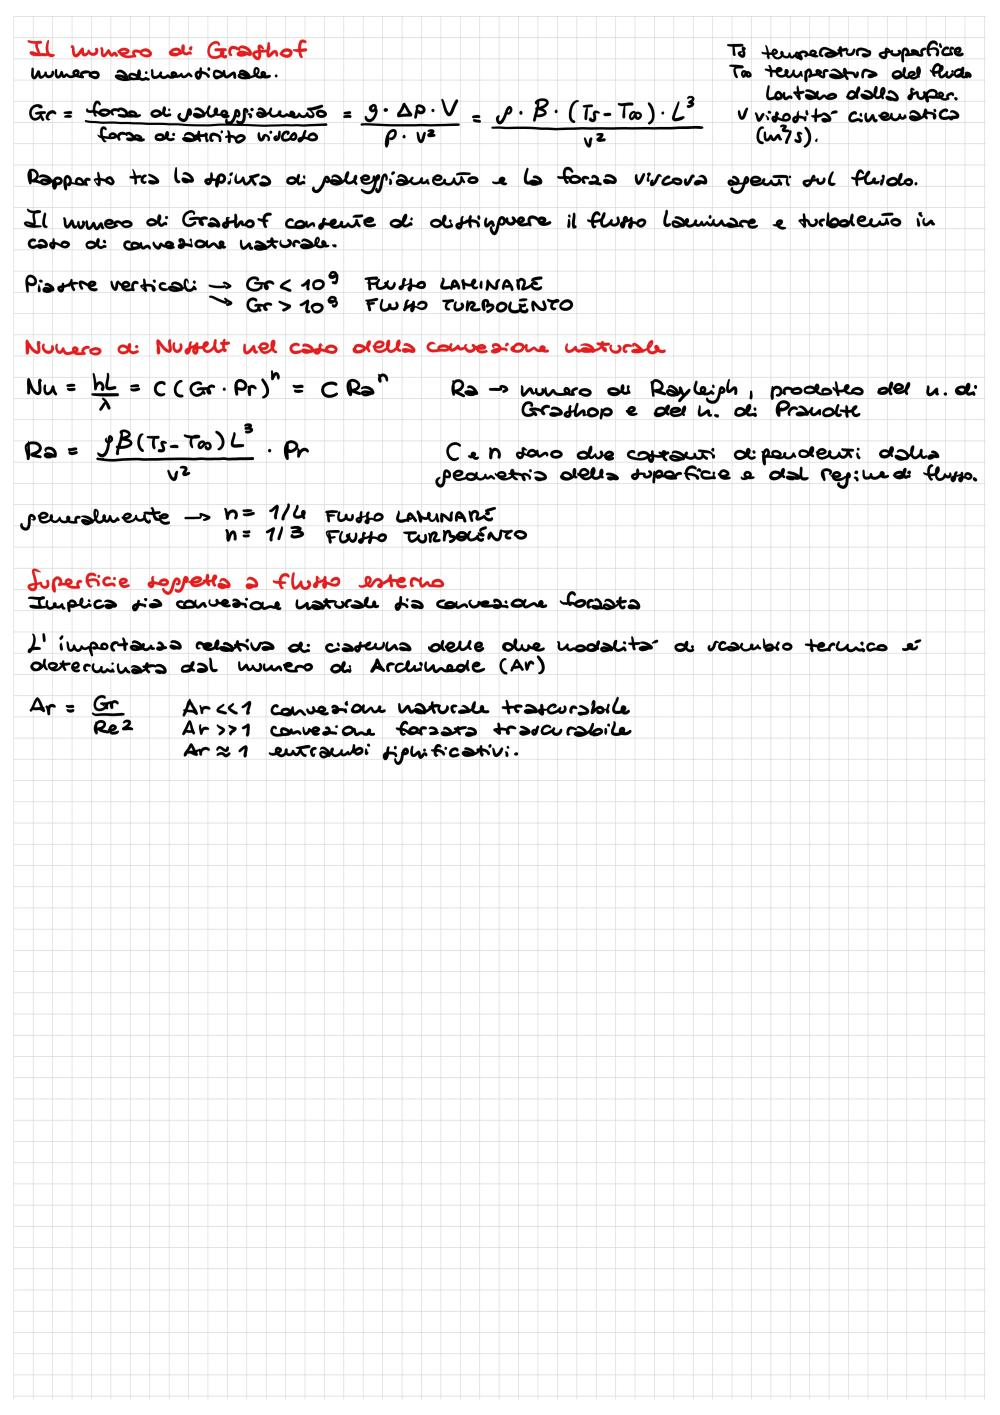 Il numero di Grashof
numero adimensionale.
Ts temperatura superficie
T∞ temperatura del fluido
lontano dalla super.
ν viscosità cinematica
(m²/s).
Gr = forza di galleggiamento / forza di attrito viscoso = g · Δρ · V / ρ · ν² = g · β · (Ts - T∞) · L³ / ν²
Rapporto tra la spinta di galleggiamento e la forza viscosa agenti sul fluido.
Il numero di Grashof consente di distinguere il flusso laminare e turbolento in
caso di convezione naturale.
Piastre verticali → Gr < 10⁹ FLUSSO LAMINARE
→ Gr > 10⁹ FLUSSO TURBOLENTO
Numero di Nusselt nel caso della convezione naturale
Nu = hL / λ = C (Gr · Pr)ⁿ = C Raⁿ
Ra → numero di Rayleigh, prodotto del n. di
Grashop e del n. di Prandtl
Ra = gβ(Ts - T∞)L³ / ν² · Pr
C e n sono due costanti dipendenti dalla
geometria della superficie e dal regime di flusso.
generalmente → n = 1/4 FLUSSO LAMINARE
n = 1/3 FLUSSO TURBOLENTO
Superficie soggetta a flusso esterno
Implica sia convezione naturale sia convezione forzata
L' importanza relativa di ciascuna delle due modalità di scambio termico é
determinata dal numero di Archimede (Ar)
Ar = Gr / Re²
Ar << 1 convezione naturale trascurabile
Ar >> 1 convezione forzata trascurabile
Ar ≈ 1 entrambi significativi.